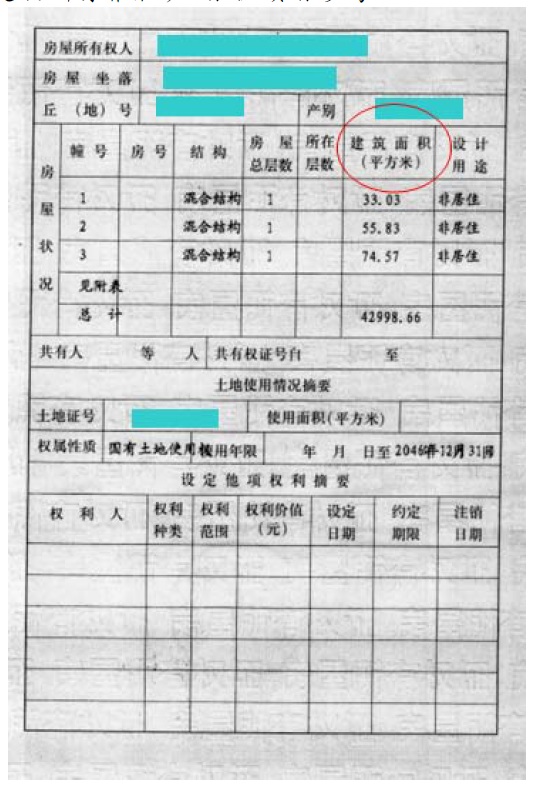 房屋所有权人
房屋坐落
丘（地）号 产别
房屋状况 幢号 房号 结构 房屋总层数 所在层数 建筑面积（平方米） 设计用途
1 混合结构 1 33.03 非居住
2 混合结构 1 55.83 非居住
3 混合结构 1 74.57 非居住
见附表
总计 42998.66
共有人 等 人 共有权证号自 至
土地使用情况摘要
土地证号 使用面积(平方米)
权属性质 国有土地使用权 使用年限 年 月 日至 2046年12月31日
设定他项权利摘要
权利人 权利种类 权利范围 权利价值（元） 设定日期 约定期限 注销日期